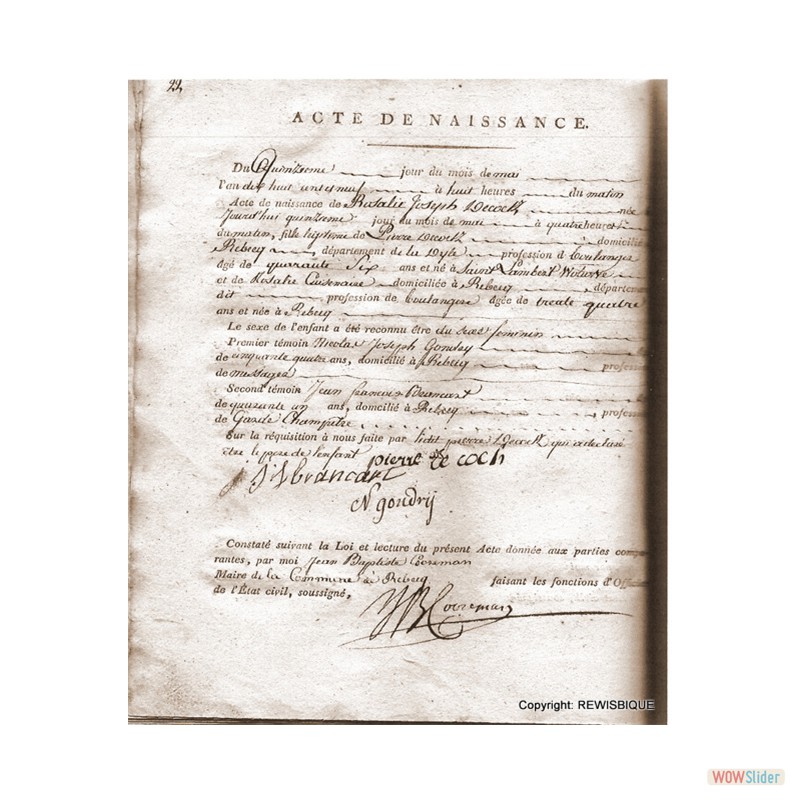 22.
ACTE DE NAISSANCE.
Du Quinzieme jour du mois de mai
l'an dix huit cent et neuf à huit heures du matin
Acte de naissance de Rosalie Joseph Decock née
jourd'hui quinzieme jour du mois de mai à quatre heures
du matin, fille legitime de Pierre Decock domicilié
Rebecq, département de la Dyle profession d Boulanger
âgé de quarante Six ans et né à Saint Lambert Woluwe
et de Rosalie domiciliée à Rebecq, départemen
dit profession de boulangere âgée de trente quatre
ans et née à Rebecq
Le sexe de l'enfant a été reconnu être du sexe feminin
Premier témoin Nicolas Joseph
de cinquante quatre ans, domicilié à Rebecq profess
de messager
Second témoin Jean francois
de quarante un ans, domicilié à Rebecq, profess
de Garde Champetre
Sur la réquisition à nous faite par ledit pierre Decock qui a declaré
être le pere de l'enfant
pierre de cock
J f brancart
N goudrij
Constaté suivant la Loi et lecture du présent Acte donnée aux parties compa
rantes, par moi Jean Baptiste Cooreman
Maire de la Commune de Rebecq faisant les fonctions d'Offici
de l'État civil, soussigné,
JB Cooreman
Copyright: REWISBIQUE
WOWSlider